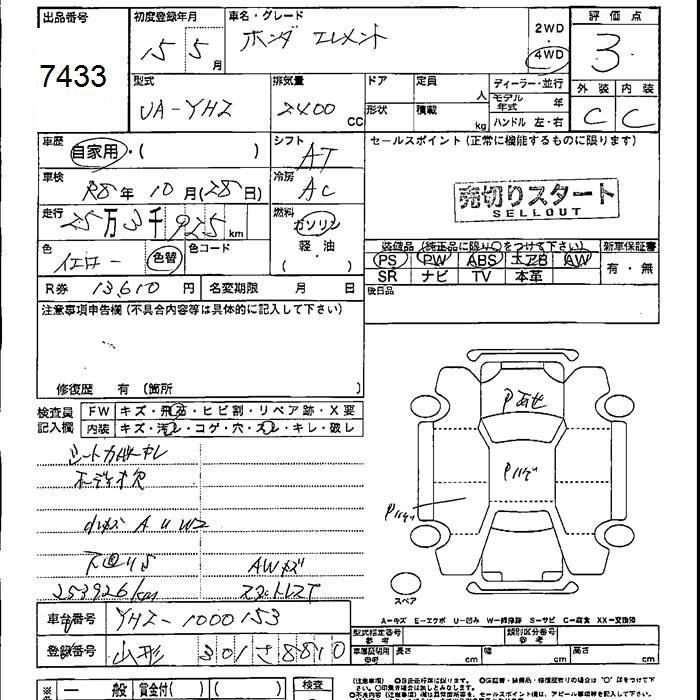 出品番号 初度登録年月 車名・グレード 2WD 評価点
7433 15 5月 ホンダ エレメント 4WD 3
型式 排気量 ドア 定員 人 ディーラー・並行 外装 内装
UA-YH2 2400 CC 形状 積載 kg モデル年式 年 C C
ハンドル 左・右
車歴 自家用・( ) シフト AT セールスポイント (正常に機能するものに限ります)
車検 R8年 10月(28日) 冷房 AC 売切りスタート
SELLOUT
走行 25万3千925km 燃料 ガソリン
軽・油
( )
色 イエロー 色替 色コード 装備品 (純正品に限り○をつけて下さい) 新車保証書
PS PW ABS エアB AW 有・無
SR ナビ TV 本革
R券 13,610円 名変期限 月 日 後日品
注意事項申告欄 (不具合内容等は具体的に記入して下さい)
修復歴 有 (箇所 )
検査員 FW キズ・飛石・ヒビ割・リペア跡・X要
記入欄 内装 キズ・汚レ・コゲ・穴・スレ・キレ・破レ
シートカバーキレ
オーディオ欠
小キズ A U W2
253926km AWキズ
スタットレスT
Pあせ
Pハゲ
Pハゲ
スペア
A-キズ E-エクボ U-凹み W-補修跡 S-サビ C-腐食 XX-交換済
車台番号 YH2-1000153
登録番号 山形 301 さ 8810
型式指定番号 参考 類別区分番号 参考
車庫証明用 参考 長さ cm 幅 cm 高さ cm
※ 一般 賞金付( )( ) 検査